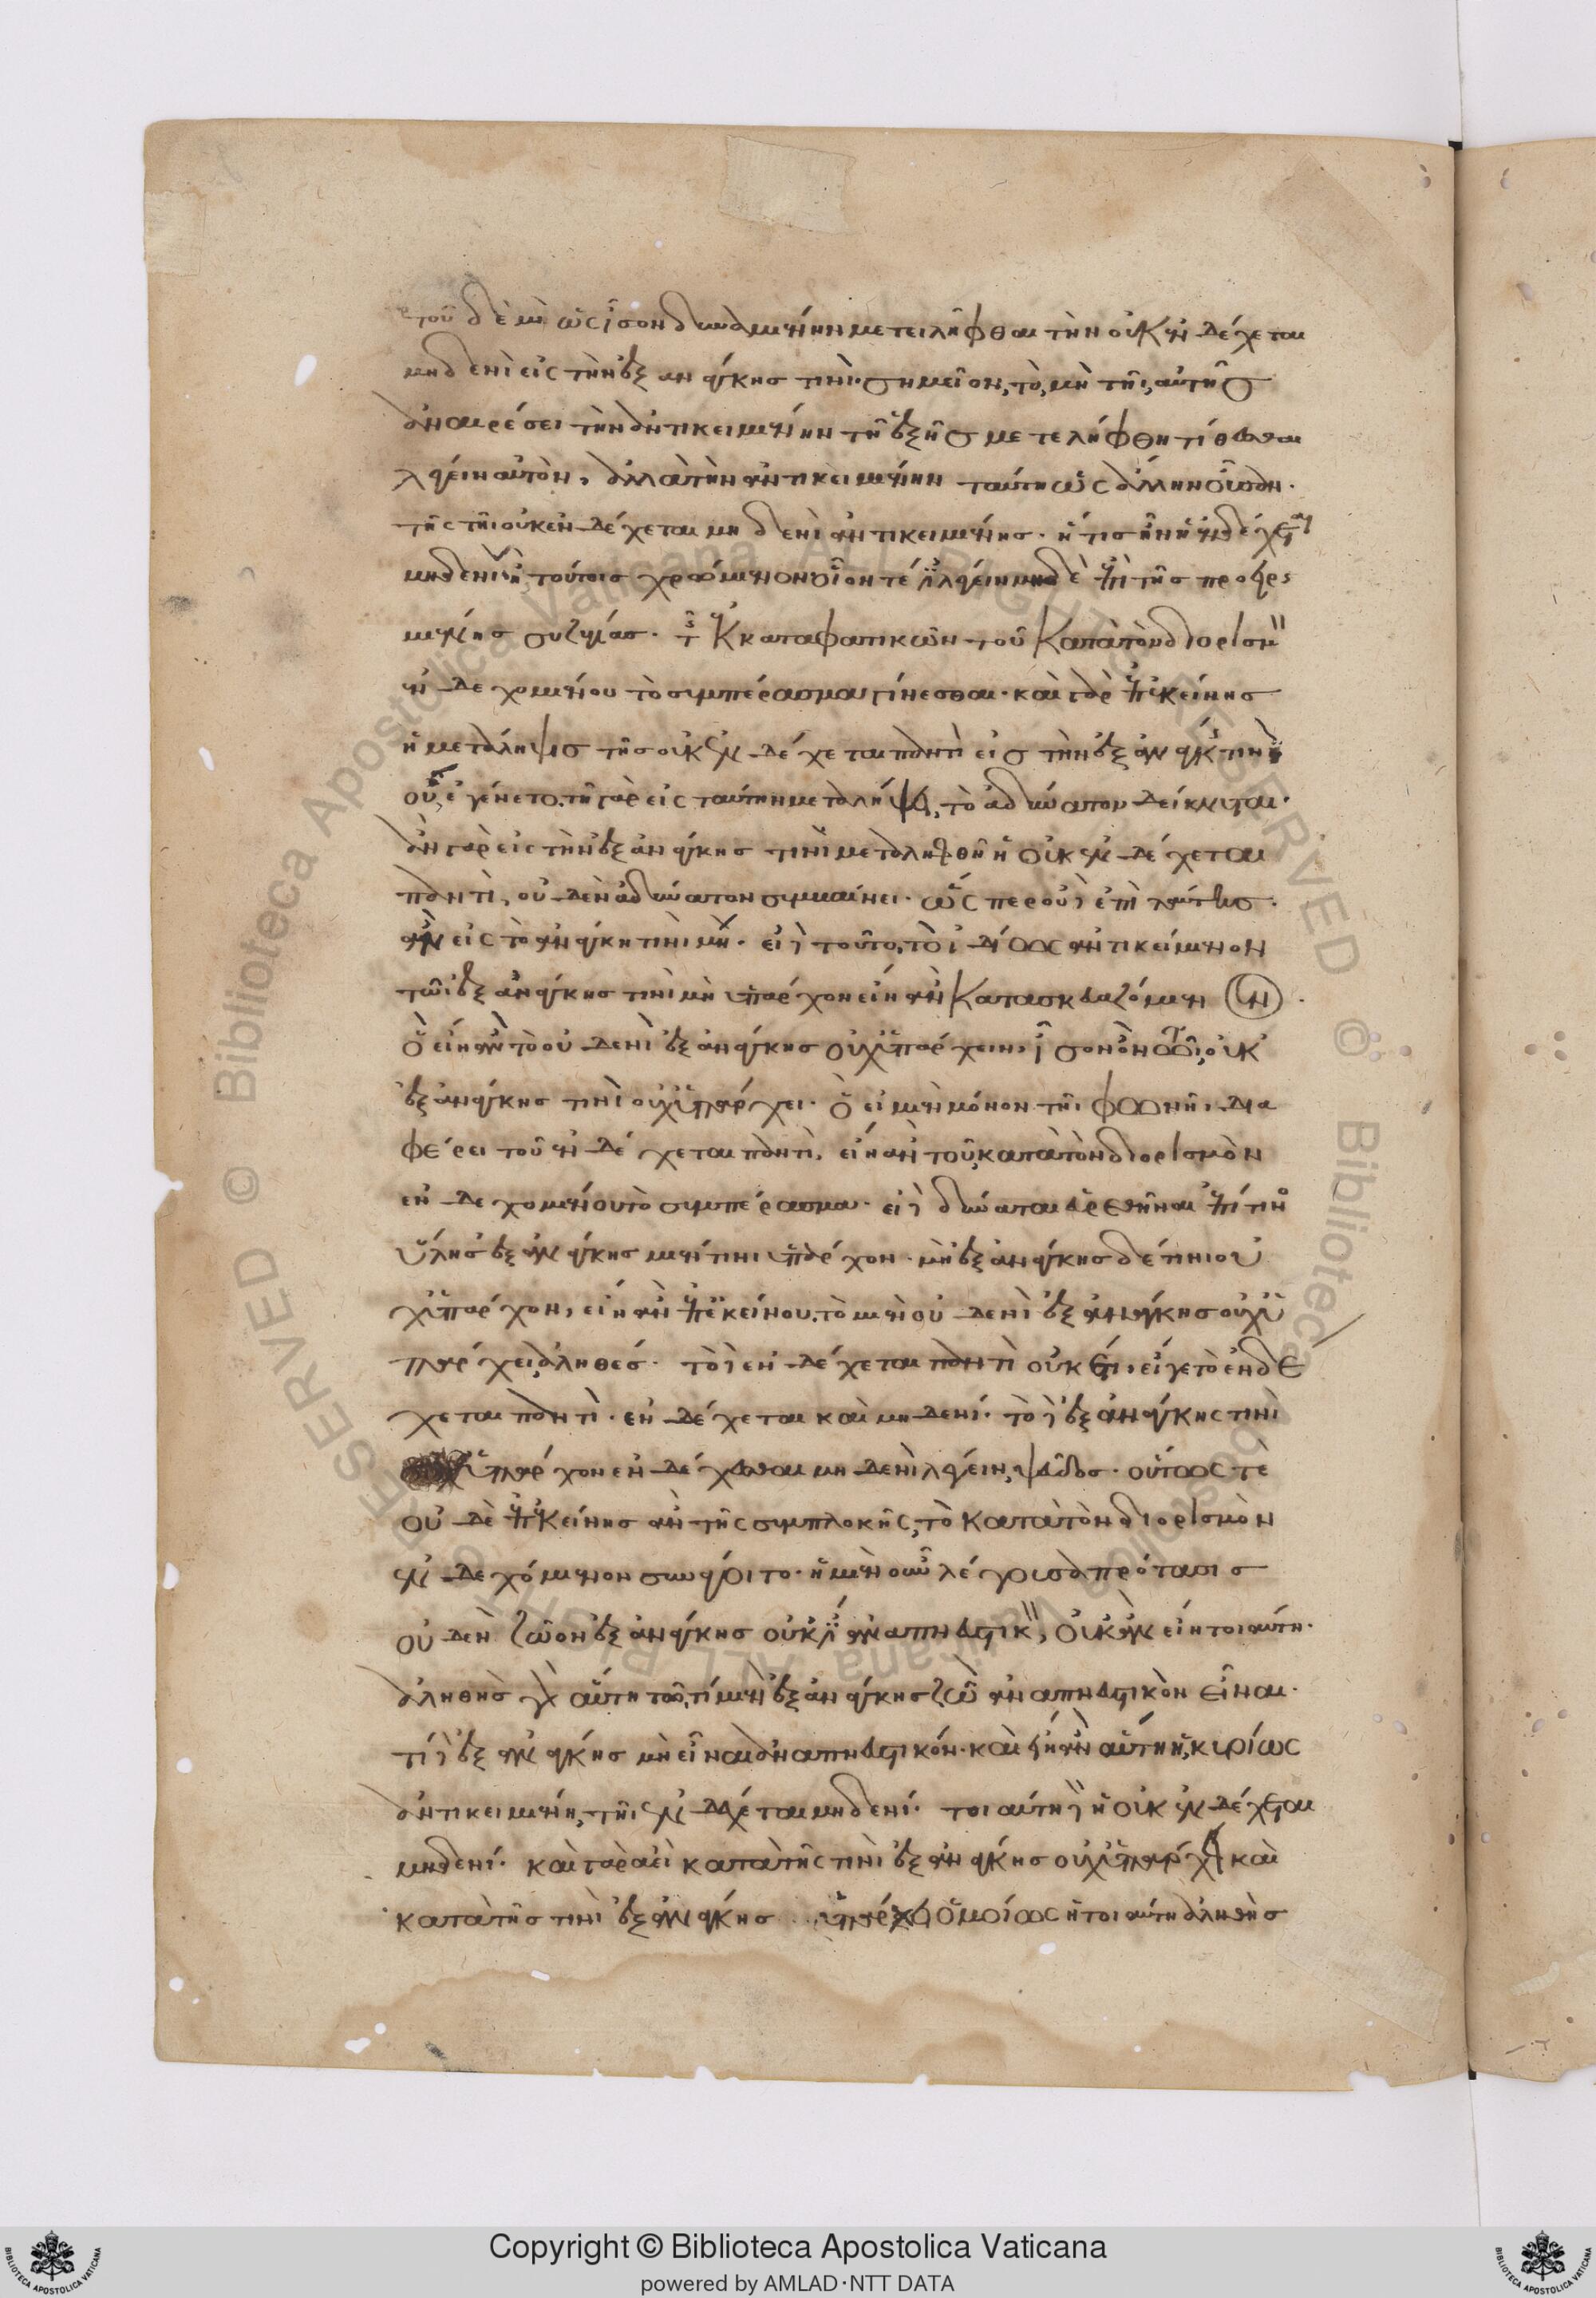 τοῦ δὲ μὴ ὡς ἴσον δυναμένην μετειλῆφθαι τὴν οὐκ ἐνδέχεται
μηδενὶ εἰς τὴν ἐξ ἀνάγκης τινί. σημεῖον, τὸ, μὴ τῆι, αὐτῆς
ἀναιρέσει τὴν ἀντικειμένην τῆ ἑξῆς μετελήφθη τίθεσθαι
λέγειν αὐτὸν, ἀλλὰ τὴν ἀντικειμένην ταύτη ὡς ἄλλην οὖσαν.
τῆς τῆι οὐκ ἐνδέχεται μηδενὶ ἀντικειμένης. ἥτις ἦν ἡ ἐνδέχεται
μηδενί τούτοις χρώμενον οἷόν τέ λέγειν μηδὲ ἐπὶ τῆς προειρη
μένης συζυγίας. ἐκ καταφατικῶν τοῦ κατὰ τὸν διορισμ
ἐνδεχομένου τὸ συμπέρασμα γίνεσθαι. καὶ γὰρ ἐπ' ἐκείνης
ἡ μετάληψις τῆς οὐκ ἐνδέχεται παντὶ εἰς τὴν ἐξ ἀνάγκ τινὶ
οὐ, ἐγένετο. τῆ γὰρ εἰς ταύτην μεταλήψει, τὸ ἀδύνατον δείκνυται.
ἂν γὰρ εἰς τὴν ἐξ ἀνάγκης τινὶ μεταληφθῆ ἡ οὐκ ἐνδέχεται
παντὶ, οὐδὲν ἀδύνατον συμβαίνει. ὥσπερ οὐδὲ ἐπὶ ταύτης.
ἂν εἰς τὸ ἀνάγκη τινὶ μή. εἰ δὲ τοῦτο, τὸ ἰδίως ἀντικείμενον
τῶι ἐξ ἀνάγκης τινὶ μὴ ὑπάρχον εἴη ἂν κατασκευαζόμενον.
ὃ εἴη ἂν τὸ οὐδενὶ ἐξ ἀνάγκης οὐχ ὑπάρχειν, ἴσον ὂν τῶι, οὐκ
ἐξ ἀνάγκης τινὶ οὐχ ὑπάρχει. ὃ εἰ μὲν μόνον τῆι φωνῆι, δια
φέρει τοῦ ἐνδέχεται παντὶ, εἴη ἂν τοῦ, κατὰ τὸν διορισμὸν
ἐνδεχομένου τὸ συμπέρασμα. εἰ δὲ δύναται εὑρεθῆναι ἐπί τινος
ὕλης ἐξ ἀνάγκης μέν τινι ὑπάρχον. μὴ ἐξ ἀνάγκης δέ τινι οὐ
χ ὑπάρχον, εἴη ἂν ἐπ' ἐκείνου. τὸ μὲν οὐδενὶ ἐξ ἀνάγκης οὐχ ὑ
πάρχει, ἀληθές. τὸ δὲ ἐνδέχεται παντὶ οὐκέτι, εἴγε τὸ ἐνδέ
χεται παντὶ. ἐνδέχεται καὶ μηδενί. τὸ δὲ ἐξ ἀνάγκης τινὶ
ὑπάρχον ἐνδέχεσθαι μηδενὶ λέγειν, ψεῦδος. οὕτως τὲ
οὐδὲ ἐπ' ἐκείνης ἂν τῆς συμπλοκῆς, τὸ κατὰ τὸν διορισμὸν
ἐνδεχόμενον συνάγοιτο. ἡ μὲν οὖν λέγουσα πρότασις
οὐδὲν ζῶον ἐξ ἀνάγκης οὐκ ἀναπνευστικ, οὐκ ἂν εἴη τοιαύτη.
ἀληθὴς γὰρ αὕτη τῶ, τί μὲν ἐξ ἀνάγκης ζῶ ἀναπνευστικὸν εἶναι.
τί δὲ ἐξ ἀνάγκης μὴ εἶναι ἀναπνευστικόν. καὶ εἴη ἂν αὕτη ἡ, κυρίως
ἀντικειμένη, τῆι ἐνδέχεται μηδενί. τοιαύτη δὲ ἡ οὐκ ἐνδέχεται
μηδενί. καὶ γὰρ ἀεὶ κατὰ τῆς τινὶ ἐξ ἀνάγκης οὐχ ὑπάρχει καὶ
κατὰ τῆς τινὶ ἐξ ἀνάγκης ὑπάρχει ὁμοίως ἡ τοιαύτη ἀληθὴς
Copyright © Biblioteca Apostolica Vaticana
powered by AMLAD·NTT DATA